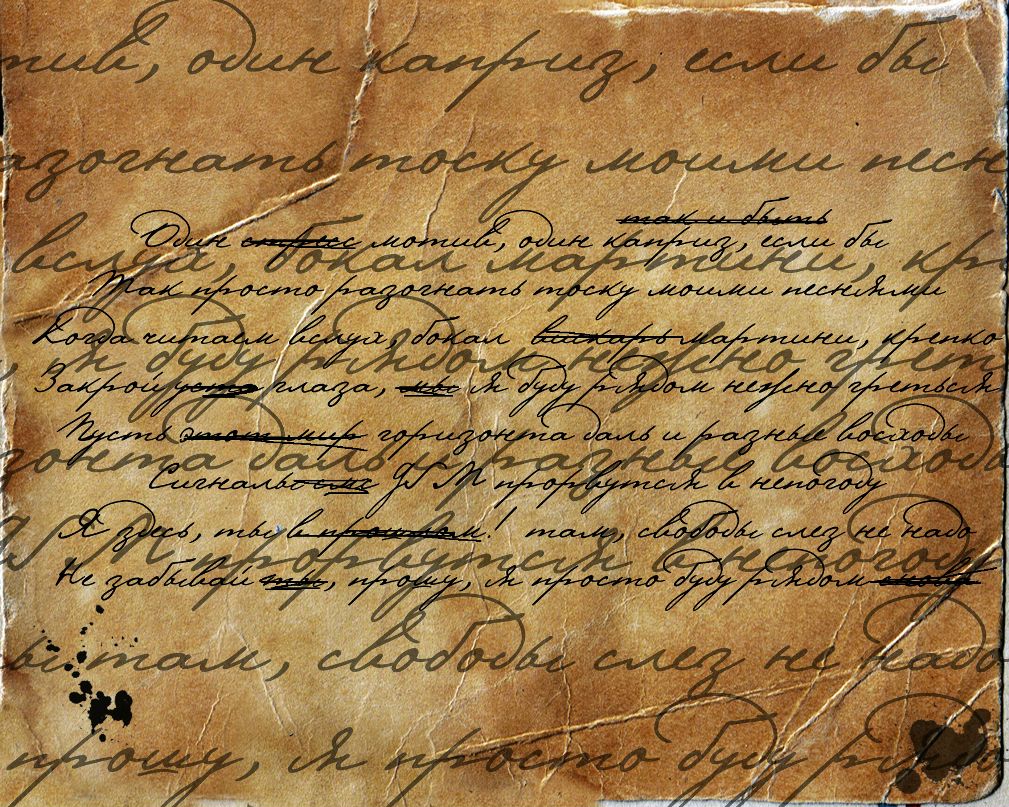 тив, один каприз, если бы
азогнать тоску моими песн
так и быть
Один стресс мотив, один каприз, если бы
вслух, бокал мартини, кре
Так просто разогнать тоску моими песнями
Когда читаем вслух, бокал вискарь мартини, крепко
, я буду рядом нежно грет
Закрой уста глаза, мы я буду рядом нежно греться
Пусть этот мир горизонта даль и разные восходы
зонта даль и разные восход
Сигналы смс GSM прорвутся в непогоду
Я здесь, ты в прошлом! там, свободы слез не надо
GSM прорвутся в непогоду
Не забывай ты, прошу, я просто буду рядом снова
ы там, свободы слез не надо
прошу, я просто буду рядо